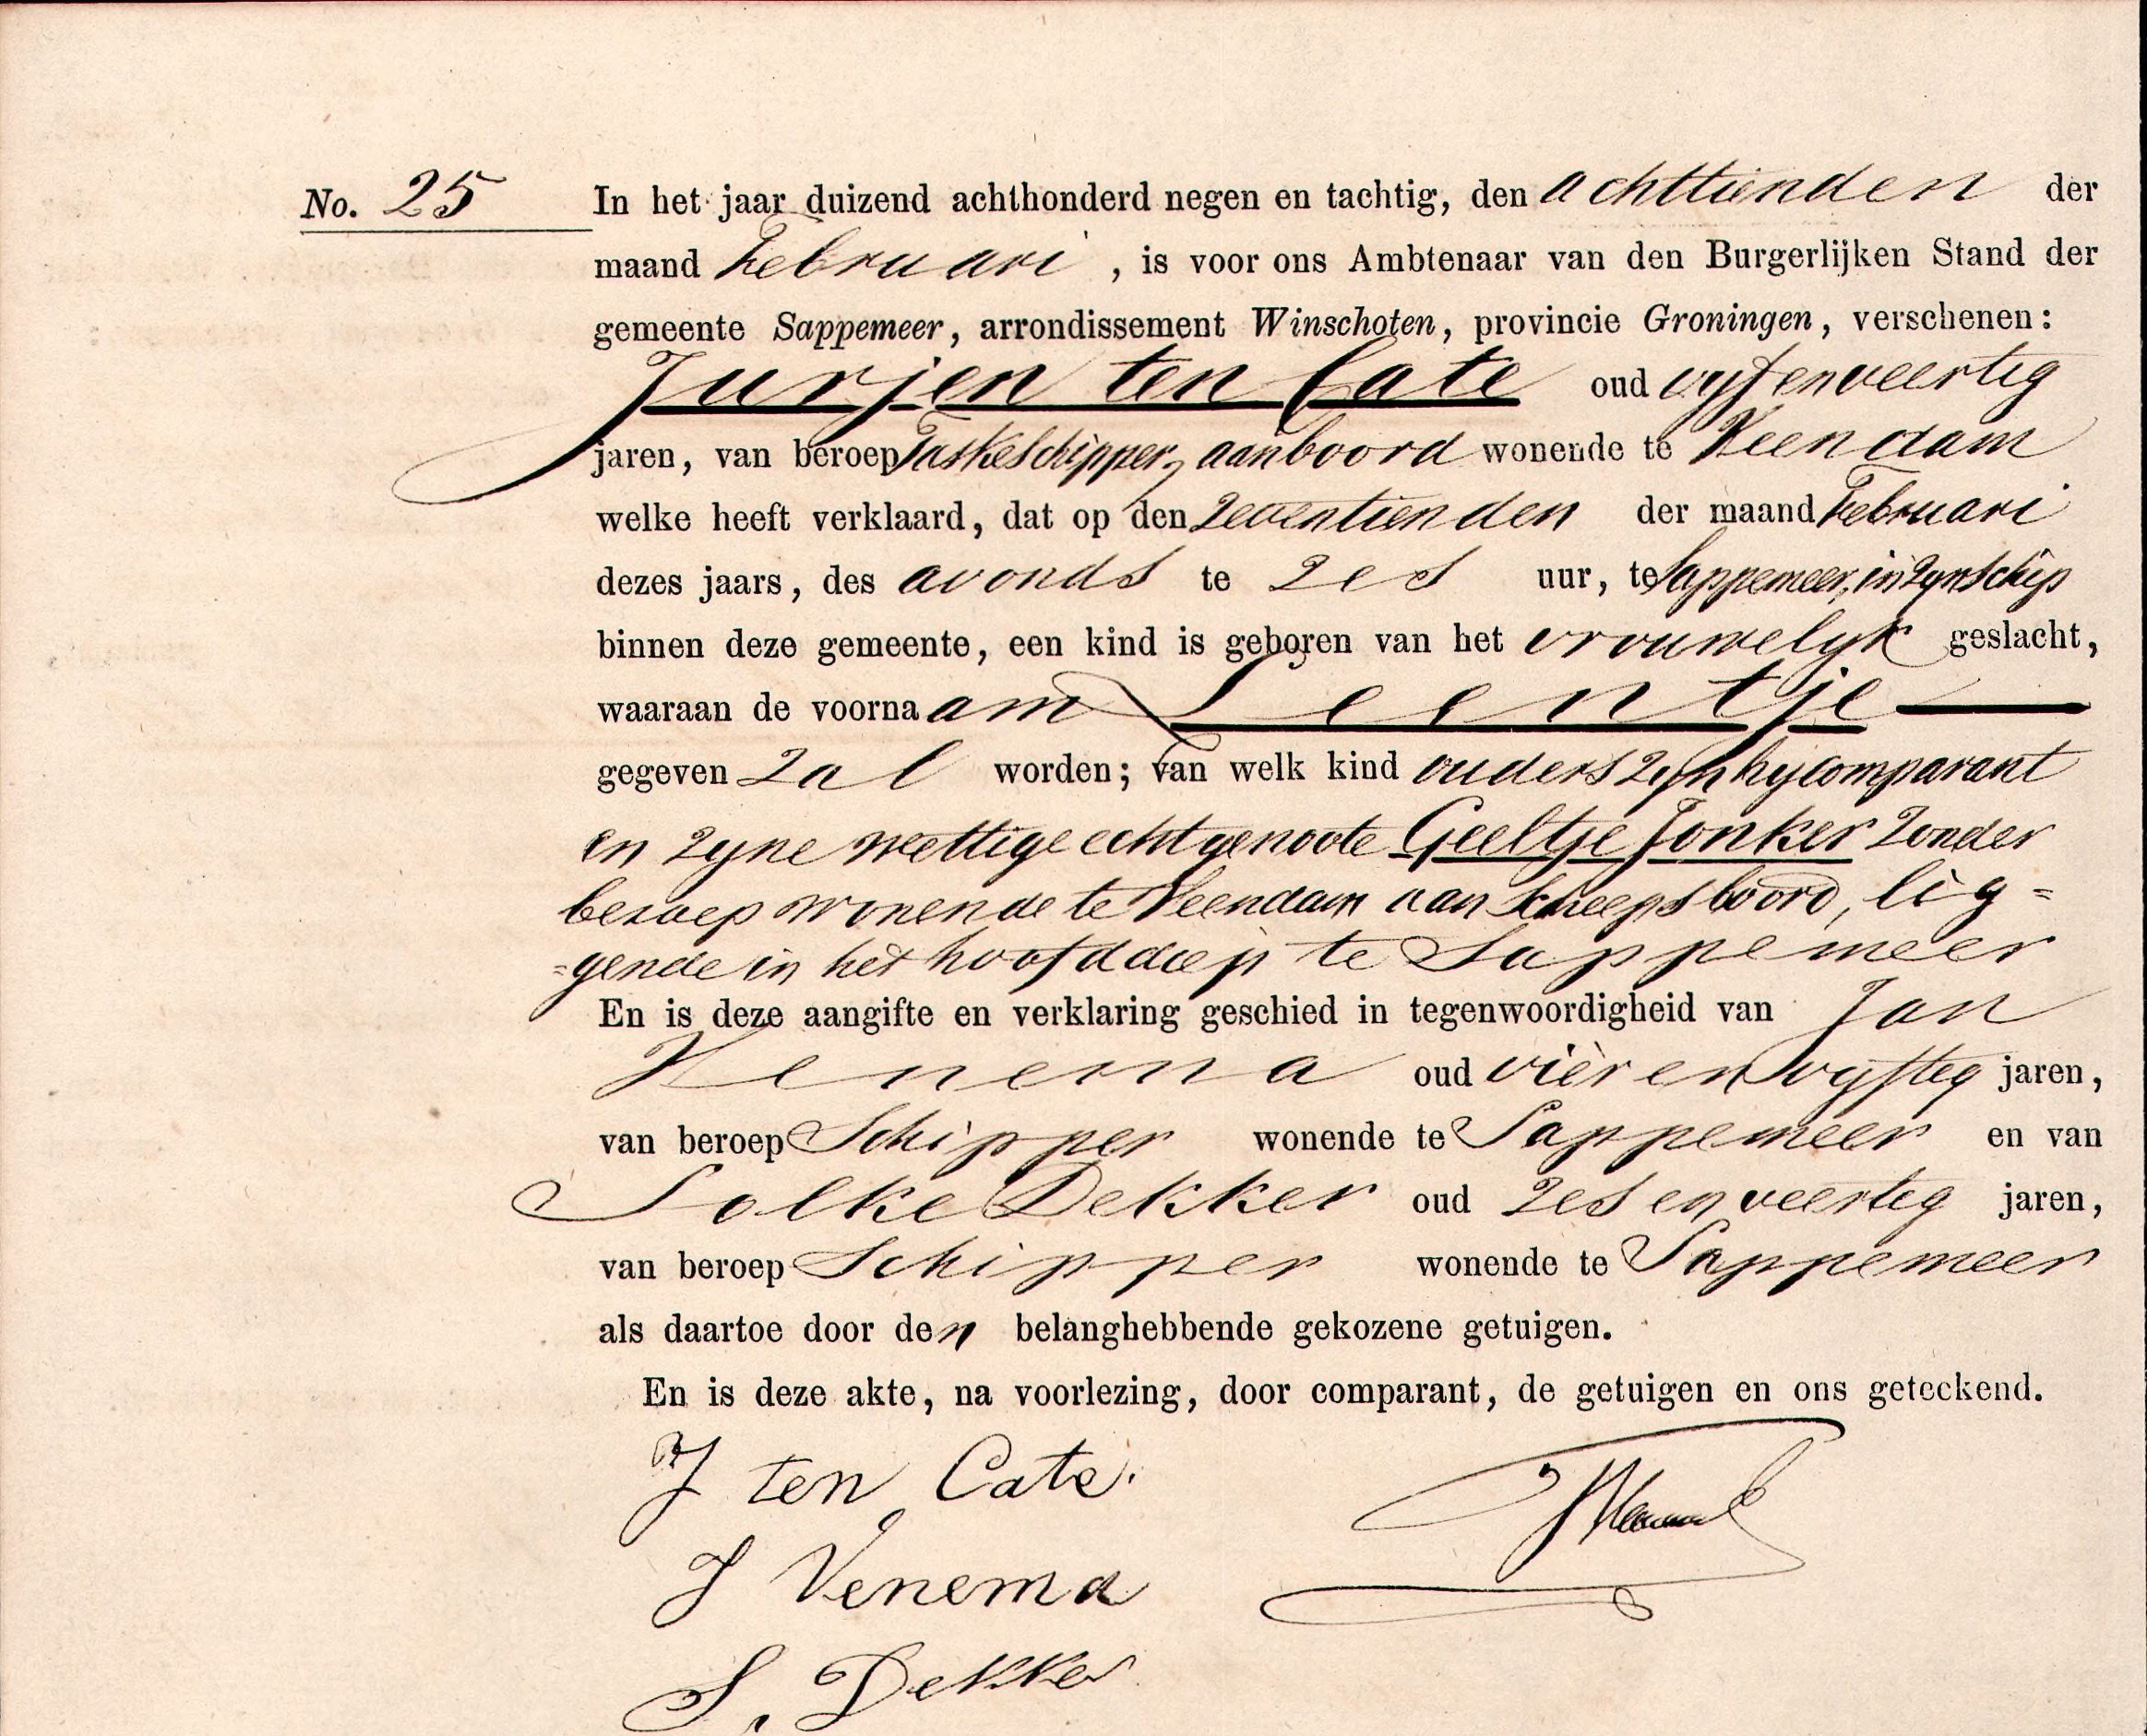 No. 25
In het jaar duizend achthonderd negen en tachtig, den achttienden der
maand Februari, is voor ons Ambtenaar van den Burgerlijken Stand der
gemeente Sappemeer, arrondissement Winschoten, provincie Groningen, verschenen:
Jurjen ten Cate oud vyf en veertig
jaren, van beroep Taskeschipper, aan boord wonende te Veendam
welke heeft verklaard, dat op den zeventienden der maand Februari
dezes jaars, des avonds te zes uur, te Sappemeer, in zyn schip
binnen deze gemeente, een kind is geboren van het vrouwelyk geslacht,
waaraan de voornaam Leentje
gegeven zal worden; van welk kind ouders zyn hy comparant
en zyne wettige echtgenoote Geeltje Jonker zonder
beroep wonende te Veendam aan scheepsboord, lig=
=gende in het hoofddiep te Sappemeer
En is deze aangifte en verklaring geschied in tegenwoordigheid van Jan
Venema oud vier en vyftig jaren,
van beroep Schipper wonende te Sappemeer en van
Solke Dekker oud zes en veertig jaren,
van beroep Schipper wonende te Sappemeer
als daartoe door den belanghebbende gekozene getuigen.
En is deze akte, na voorlezing, door comparant, de getuigen en ons geteekend.
J ten Cate.
J Venema
S. Dekker